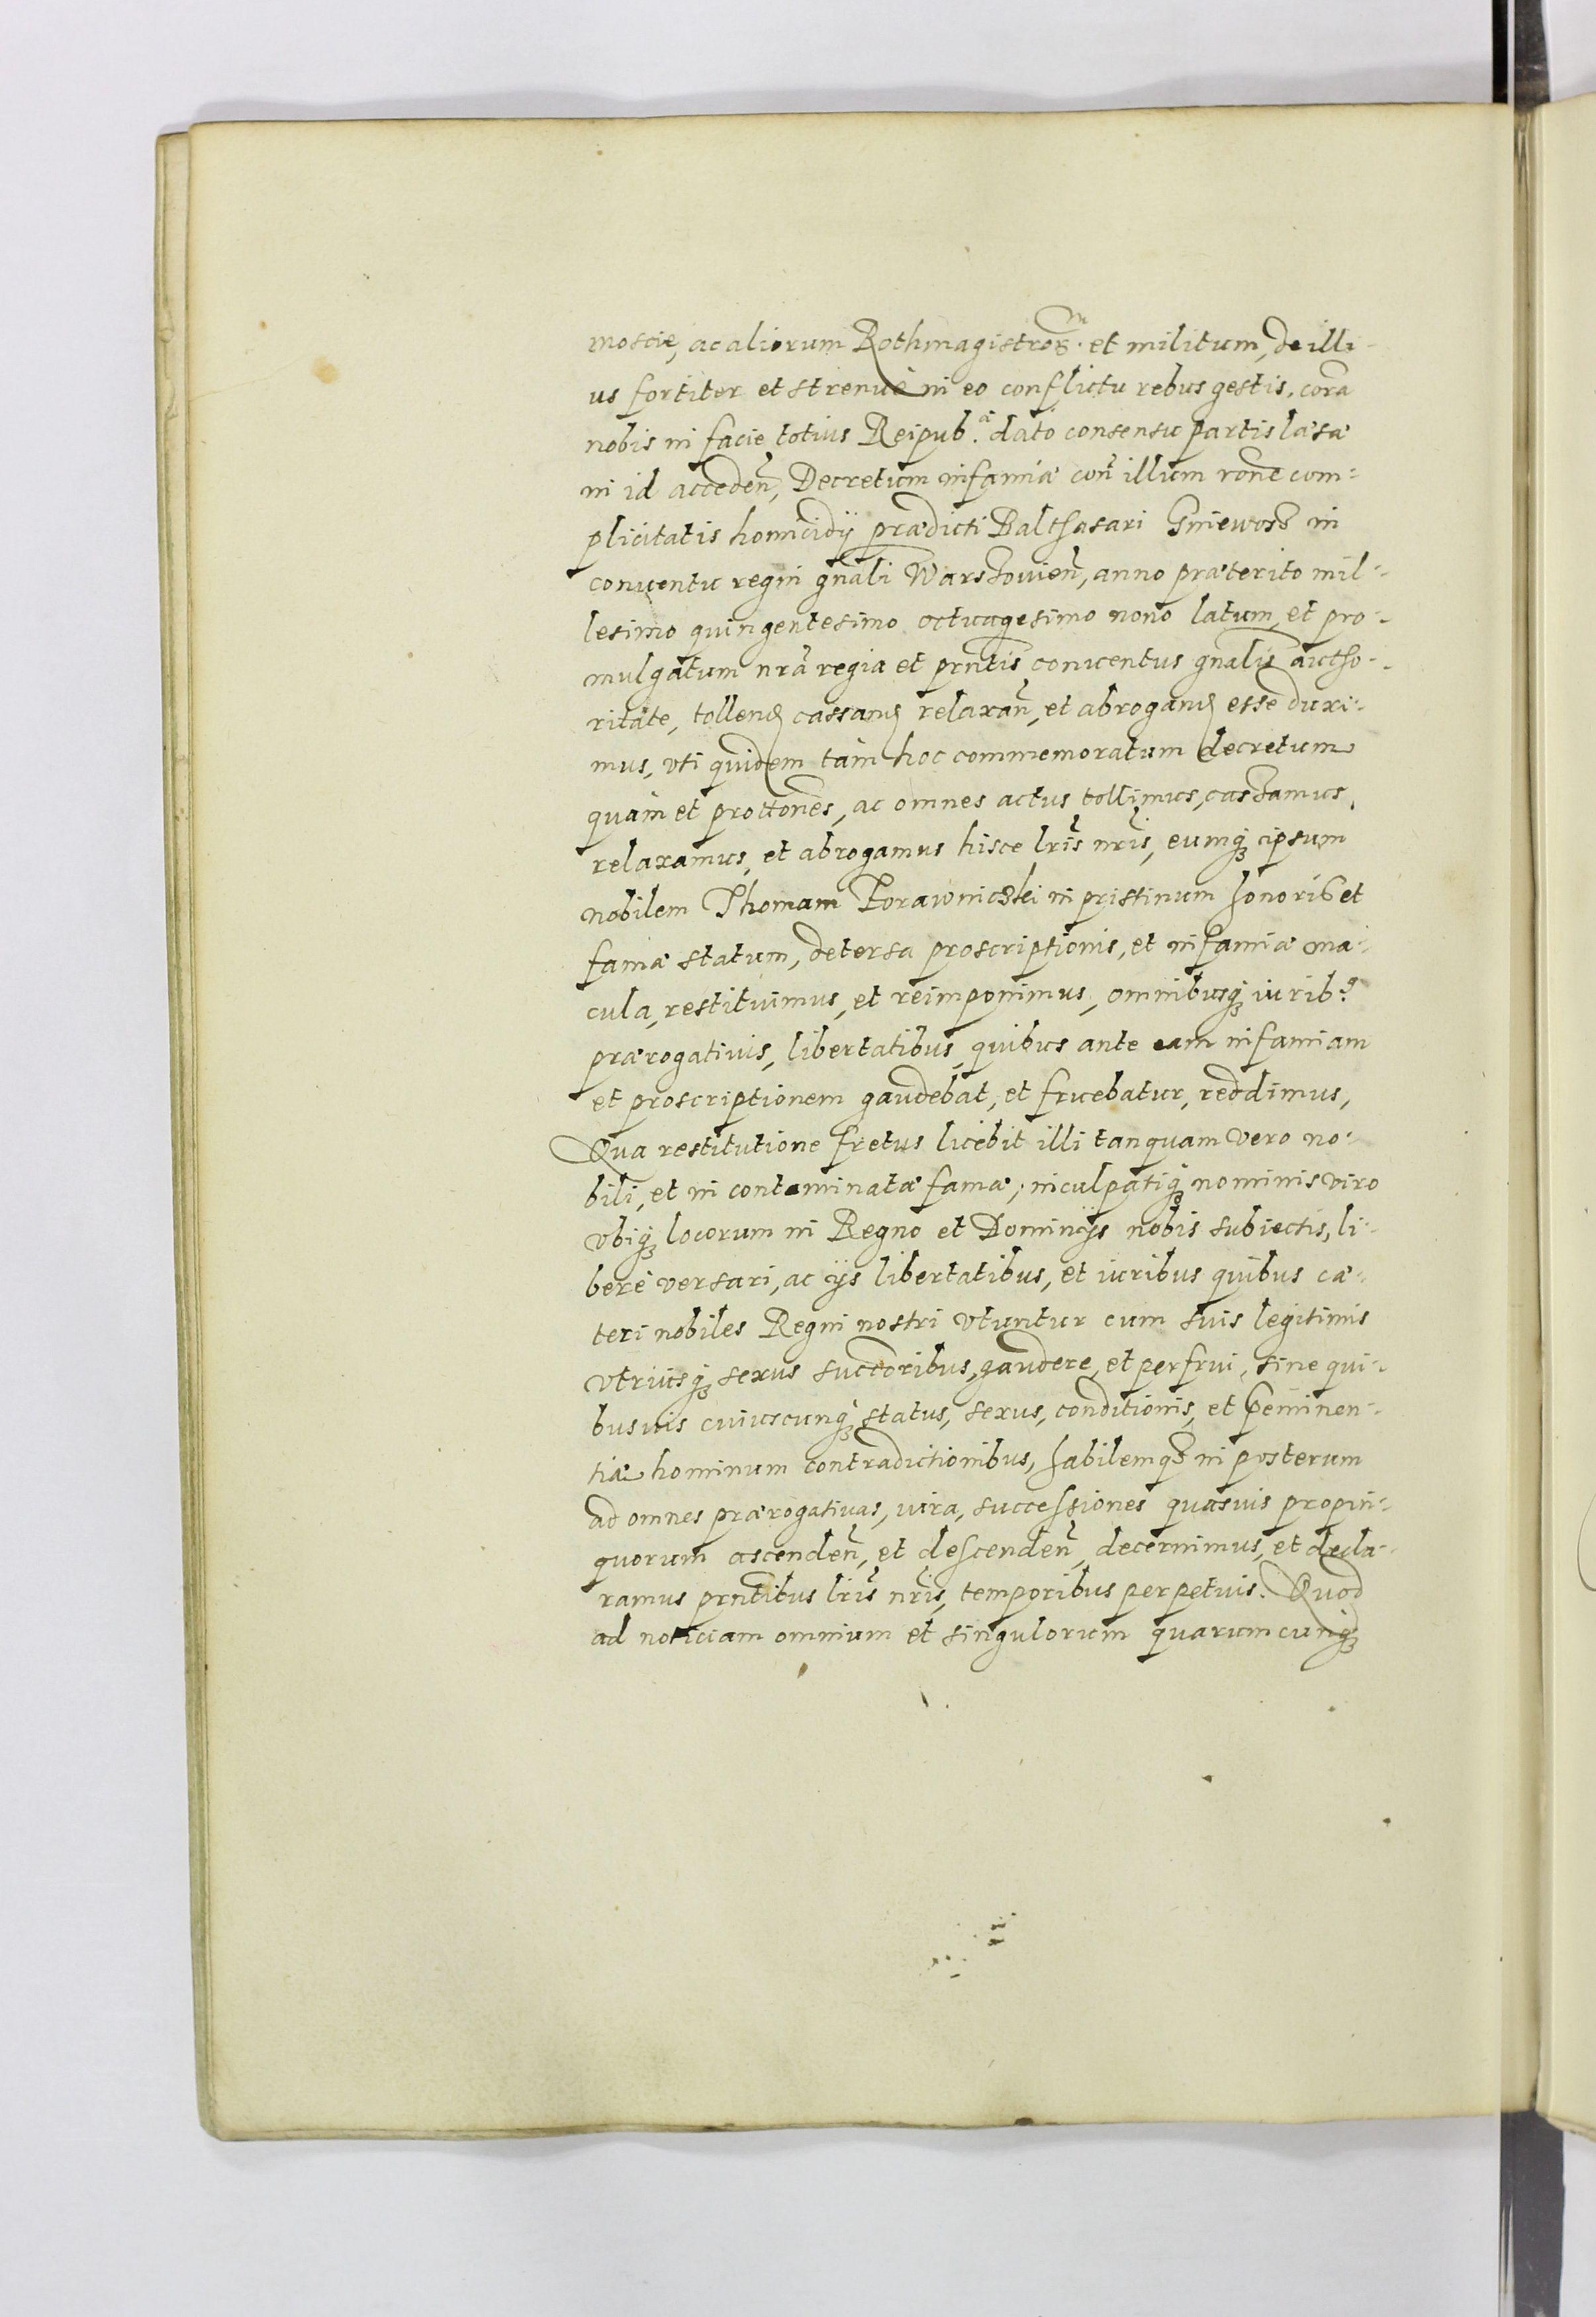 moscię, ac aliorum Rothmagistror̃. et militum, de illi-
us fortiter et strenuè in eo conflictu rebus gestis, corã
nobis in facie totius Reipub.ᵃᵉ dato consensu partis læsæ
in id acceden̄, Decretum infamiæ con̄ illum rōne com-
plicitatis homicidÿ prædicti Balthasari Gniewosz in
conuentu regni gn̄ali Warszowien̄, anno præterito mil-
lesimo quingentesimo octuagesimo nono latum, et pro-
mulgatum nr̄a regia et prn̄tis conuentus gn̄alis autho-
ritate, tollenđ cassanđ relaxan̄, et abroganđ esse duxi-
mus, vti quidem tàm hoc commemoratum decretum
quàm et proc̄tiones, ac omnes actus tollimus, casszamus
relaxamus, et abrogamus hisce lr̄is nr̄is, eumq₃ ipsum
nobilem Thomam Borawniczki in pristinum honoris et
famæ statum, detersa proscriptionis, et infamiæ ma-
cula, restituimus, et reimponimus, omnibusq₃ iurib₉
prærogatiuis, libertatibus, quibus ante eam infamiam
et proscriptionem gaudebat, et fruebatur, reddimus,
Qua restitutione fretus licebit illi tanquam vero no-
bili, et in contaminatæ famæ, inculpatiq₃ nominis viro
vbiq₃ locorum in Regno et Dominÿs nobis subiectis, li-
berè versari, ac ÿs libertatibus, et iuribus quibus cæ-
teri nobiles Regni nostri vtuntur cum suis legitimis
vtriusq₃ sexus succeoribus, gaudere, et perfrui, sine qui-
busuis cuiuscunq₃ status, sexus, conditionis, et p̄eminen-
tiæ hominum contradictionibus, habilemq₃ in posterum
ad omnes prærogatiuas, iura, successiones quasuis propin-
quorum ascenden̄, et descenden̄, decernimus, et decla-
ramus prn̄tibus lr̄is nr̄is, temporibus perpetuis. Quod
ad noticiam omnium et singulorum quarumcunq₃